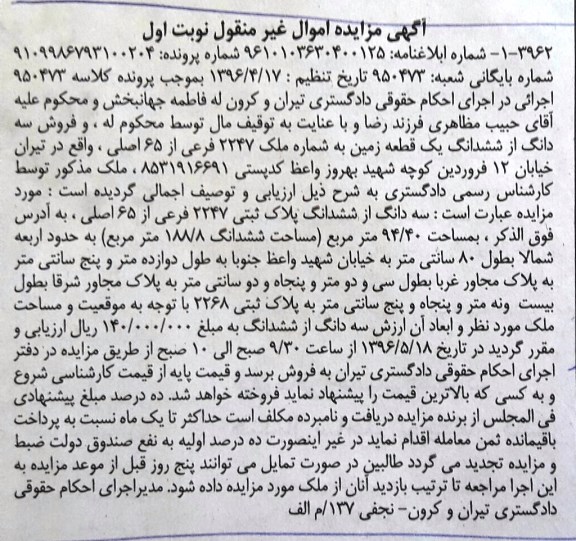 آگهی مزایده اموال غیر منقول نوبت اول
۱-۳۹۶۲- شماره ابلاغنامه: ۹۶۱۰۱۰۳۶۳۰۴۰۰۱۲۵ شماره پرونده: ۹۱۰۹۹۸۶۷۹۳۱۰۰۲۰۴
شماره بایگانی شعبه: ۹۵۰۴۷۳ تاریخ تنظیم : ۱۳۹۶/۴/۱۷ بموجب پرونده کلاسه ۹۵۰۴۷۳
اجرائی در اجرای احکام حقوقی دادگستری تیران و کرون له فاطمه جهانبخش و محکوم علیه
آقای حبیب مظاهری فرزند رضا و با عنایت به توقیف مال توسط محکوم له ، و فروش سه
دانگ از ششدانگ یک قطعه زمین به شماره ملک ۲۲۴۷ فرعی از ۶۵ اصلی ، واقع در تیران
خیابان ۱۲ فروردین کوچه شهید بهروز واعظ کدپستی ۸۵۳۱۹۱۶۶۹۱ ، ملک مذکور توسط
کارشناس رسمی دادگستری به شرح ذیل ارزیابی و توصیف اجمالی گردیده است : مورد
مزایده عبارت است : سه دانگ از ششدانگ پلاک ثبتی ۲۲۴۷ فرعی از ۶۵ اصلی ، به آدرس
فوق الذکر ، بمساحت ۹۴/۴۰ متر مربع (مساحت ششدانگ ۱۸۸/۸ متر مربع) به حدود اربعه
شمالا بطول ۸۰ سانتی متر به خیابان شهید واعظ جنوبا به طول دوازده متر و پنج سانتی متر
به پلاک مجاور غربا بطول سی و دو متر و پنجاه و دو سانتی متر به پلاک مجاور شرقا بطول
بیست ونه متر و پنجاه و پنج سانتی متر به پلاک ثبتی ۲۲۶۸ با توجه به موقعیت و مساحت
ملک مورد نظر و ابعاد آن ارزش سه دانگ از ششدانگ به مبلغ ۱۴۰/۰۰۰/۰۰۰ ریال ارزیابی و
مقرر گردید در تاریخ ۱۳۹۶/۵/۱۸ از ساعت ۹/۳۰ صبح الی ۱۰ صبح از طریق مزایده در دفتر
اجرای احکام حقوقی دادگستری تیران به فروش برسد و قیمت پایه از قیمت کارشناسی شروع
و به کسی که بالاترین قیمت را پیشنهاد نماید فروخته خواهد شد. ده درصد مبلغ پیشنهادی
فی المجلس از برنده مزایده دریافت و نامبرده مکلف است حداکثر تا یک ماه نسبت به پرداخت
باقیمانده ثمن معامله اقدام نماید در غیر اینصورت ده درصد اولیه به نفع صندوق دولت ضبط
و مزایده تجدید می گردد طالبین در صورت تمایل می توانند پنج روز قبل از موعد مزایده به
این اجرا مراجعه تا ترتیب بازدید آنان از ملک مورد مزایده داده شود. مدیراجرای احکام حقوقی
دادگستری تیران و کرون- نجفی ۱۳۷/م الف